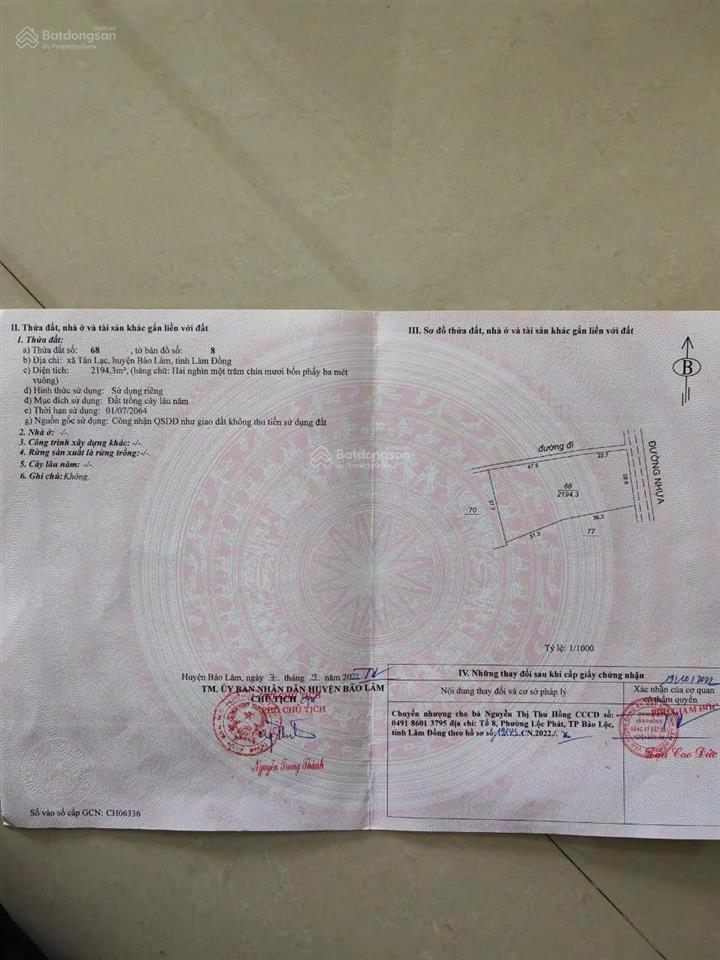 Batdongsan
.com.vn
by PropertyGuru
II. Thửa đất, nhà ở và tài sản khác gắn liền với đất
1. Thửa đất:
a) Thửa đất số: 68 , tờ bản đồ số: 8
b) Địa chỉ: xã Tân Lạc, huyện Bảo Lâm, tỉnh Lâm Đồng
c) Diện tích: 2194,3m², (bằng chữ: Hai nghìn một trăm chín mươi bốn phẩy ba mét
vuông)
d) Hình thức sử dụng: Sử dụng riêng
đ) Mục đích sử dụng: Đất trồng cây lâu năm
e) Thời hạn sử dụng: 01/07/2064
g) Nguồn gốc sử dụng: Công nhận QSDĐ như giao đất không thu tiền sử dụng đất
2. Nhà ở: -/-
3. Công trình xây dựng khác: -/-
4. Rừng sản xuất là rừng trồng:-/-
5. Cây lâu năm: -/-
6. Ghi chú:Không.
Huyện Bảo Lâm, ngày tháng 9 năm 2022
TM. ỦY BAN NHÂN DÂN HUYỆN BẢO LÂM
CHỦ TỊCH
PHÓ CHỦ TỊCH
Nguyễn Trung Thành
Số vào sổ cấp GCN: CH06336
III. Sơ đồ thửa đất, nhà ở và tài sản khác gắn liền với đất
B
đường đi
ĐƯỜNG NHỰA
47.5
22.7
28.6
68
2194,3
37.7
70
31.3
36.3
77
Batdongsan
by PropertyGuru
Tỷ lệ: 1/1000
IV. Những thay đổi sau khi cấp giấy chứng nhận
Nội dung thay đổi và cơ sở pháp lý
Xác nhận của cơ quan
có thẩm quyền
Chuyển nhượng cho bà Nguyễn Thị Thu Hồng CCCD số:
0491 8601 3795 địa chỉ: Tổ 8, Phường Lộc Phát, TP Bảo Lộc,
tỉnh Lâm Đồng theo hồ sơ số: .CN.2022./.
PHÓ GIÁM ĐỐC
VĂN PHÒNG
ĐĂNG KÝ ĐẤT ĐAI
Cao Đức